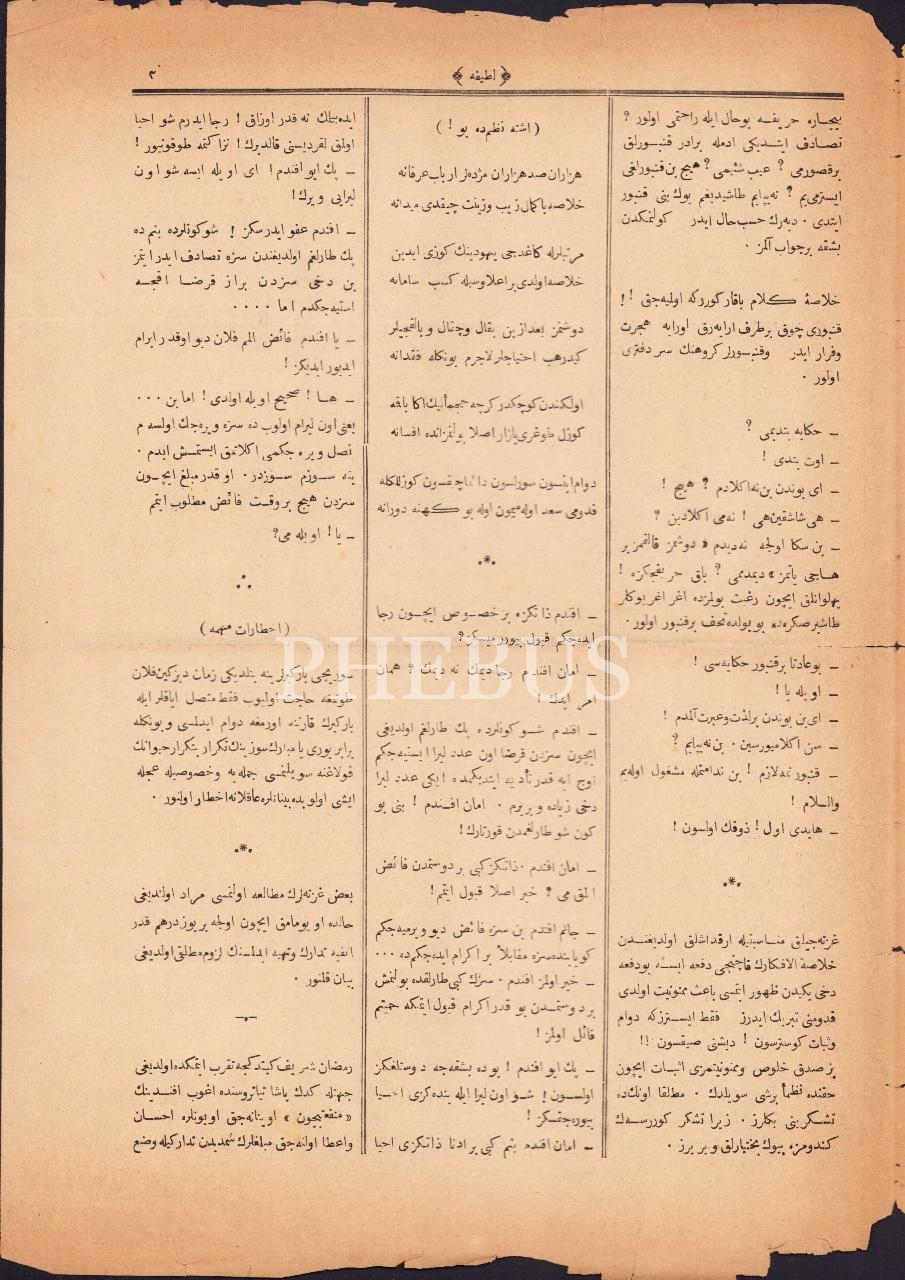 ﴿ لطيفه ﴾
٣
بيچاره حريفه بوحال ايله راحتمى اولور ؟
تصادف ايتديكى ادمله برادر قنبورلق
برقصورمى ؟ عيب شيئمى ؟ هيچ بن قنبورلغى
ايسترمى‌يم ؟ نه‌يپايم طاشيديغم يوك بنى قنبور
ايتدى . ديه‌رك حسب حال ايدر كولنمكدن
بشقه برجواب آلمز .
خلاصۀ كلام باقار كوررکه اوليه‌جق !!
قنبورى چوق برطرف ارايه‌رق اورايه هجرت
وفرار ايدر وقنبورلر كروهنك سر دفترى
اولور .
ـ حكايه بتديمى ؟
ـ اوت بتدى !
ـ اى بوندن بن نه اكلادم ؟ هيچ !
ـ هى شاشقين هى ! نه‌مى اكلادين ؟
ـ بن سكا اولجه نه‌ديدم « دوشمز قالقمز بر
هاجى ياتمز » ديمدمى ؟ باق حريفجكزه !
پهلوانلق ايچون رغبت بولمزده اغر اغر يوكلر
طاشير صكره‌ده بويولده تحف برقنبور اولور .
ـ بوعادتا برقنبور حكايه‌سى !
ـ اويله يا !
ـ اى بن بوندن برلذت وعبرت آلمدم !
ـ سن اكلاميورسين . بن نه‌يپايم ؟
ـ قنبور نمه‌لازم ! بن ندامتمله مشغول اوله‌يم
والسلام !
ـ هايدى اول ! ذوقك اولسون !
*
غزته‌جيلق مناسبتيله ارقداشلق اولديغندن
خلاصة الافكارك قاچنجى دفعه ايسه‌ده بودفعه
دخى يكيدن ظهور ايتمسى باعث ممنونيت اولدى
قدومنى تبريك ايدرز فقط ايسترزكه دوام
وثبات كوسترسون ! ديشنى صيقسون !!
بز صدق خلوص وممنونيتمزى اثبات ايچون
حقنده نظماً برشى سويلدك . مطلقا اونكده
تشكرينى بكلرز . زيرا تشكر كوررسه‌ك
كندومزه پيوك بختيارلق ويريرز .
( اشته نظم‌ده بو ! )
هزاران صد هزاران مژده‌لر ارباب عرفانه
خلاصه باكمال زيب وزينت چيقدى ميدانه
مرتبلرله كاغدجى يهودينك كوزى ايدين
خلاصه اولدى براعلا وسيله كسب سامانه
دوشمز بعدازين بقال وچتال و بالقجيلر
كيدرهپ احتياجلر لاجرم بونكله فقدانه
اولكندن كوچكدر كرچه حجماً ليك اكا باقه
كوزل طوغرى يازار اصلا بولنمز انده افسانه
دوام ايتسون سورلسون دائما چيقسون كوزللكله
قدومى سعد اوله ميمون اوله بو كهنه دورانه
*
ـ افندم ذاتكزه بر خصوص ايچون رجا
ايده‌جكم قبول بيوررميسكز ؟
ـ امان افندم رجا ديمك نه ديمك ؟ همان
امر ايدك !
ـ افندم شو كونلرده پك طارلغم اولديغى
ايچون سزدن قرضاً اون عدد ليرا ايستيه‌جكم
اوچ ايه قدر تأديه ايتديكمده ايكى عدد ليرا
دخى زياده ويريرم . امان افندم ! بنى بو
كون شو طارلغمدن قورتارك !
ـ امان افندم . ذاتكز كبى بر دوستمدن فائض
المق مى ؟ خير اصلا قبول ايتمم !
ـ جانم افندم بن سزه فائض ديو ويرميه‌جكم
كويا بنده‌سزه مقابلاً بر اكرام ايده‌جكم ده ...
ـ خير اولمز افندم . سزك كبى طارلقده بولنمش
بر دوستمدن بو قدر اكرام قبول ايتمكه حميتم
قائل اولمز !
ـ پك ايو افندم ! بوده بشقه‌جه دوستلغكز
اولسون ! شو اون ليرا ايله بنده‌كزى احيا
بيوره‌جقسكز !
ـ امان افندم بنم كبى برادنا ذاتكزى احيا
ايده‌بيلك نه قدر اوزاق ! رجا ايدرم شو احيا
اولق لقرديسنى قالديرك ! نزاكتمه طوقونيور !
ـ پك ايو افندم ! اى اويله ايسه شو اون
ليرايى ويرك !
ـ افندم عفو ايدرسكز ! شو كونلرده بنم ده
پك طارلغم اولديغندن سزه تصادف ايدر ايتمز
بن دخى سزدن براز قرضاً اقچه
استيه‌جكدم اما ....
ـ يا افندم فائض المم فلان ديو اوقدر ابرام
ايديور ايديكز !
ـ ها ! صحيح اويله اولدى ! اما بن ...
يعنى اون ليرام اولوب ده سزه ويره‌جك اولسه م
نصل ويره جكمى اكلاتمق ايستمش ايدم .
ينه سوزم سوزدر . او قدر مبلغ ايچون
سزدن هيچ بر وقت فائض مطلوب ايتمم
ـ يا ! اويله مى ؟
∴
( اخطارات مهمه )
ـوريجى باركيرلرينه بنلديكى زمان ديزكين فلان
طوتمغه حاجت اوليوب فقط متصل اياقلر ايله
باركيرك قارننه اورمغه دوام ايدلمسى و بونكله
برابر يورى يا مبارك سوزينك تكرار بتكرار حيوانك
قولاغنه سويلنمسى جمله يه وخصوصيله عجله
ايشى اولوبده بينانلره عاقلانه اخطار اولنور .
*
بعض غزته‌لرك مطالعه اولنمسى مراد اولنديغى
حالده اويومامق ايچون اولجه بر يوز درهم قدر
انفيه تدارك وتهيه ايدلمسنك لزوم مطلقى اولديغى
بيان قلنور .
رمضان شريف كيتدكجه تقرب ايتمكده اولديغى
جهتله كدك پاشا تياتروسنده اغوب افندينك
« منفعتيچون » اوينانه‌جق اويونلره احسان
واعطا اولنه‌جق مبلغلرك شمديدن تداركيله وضع
PHEBUS